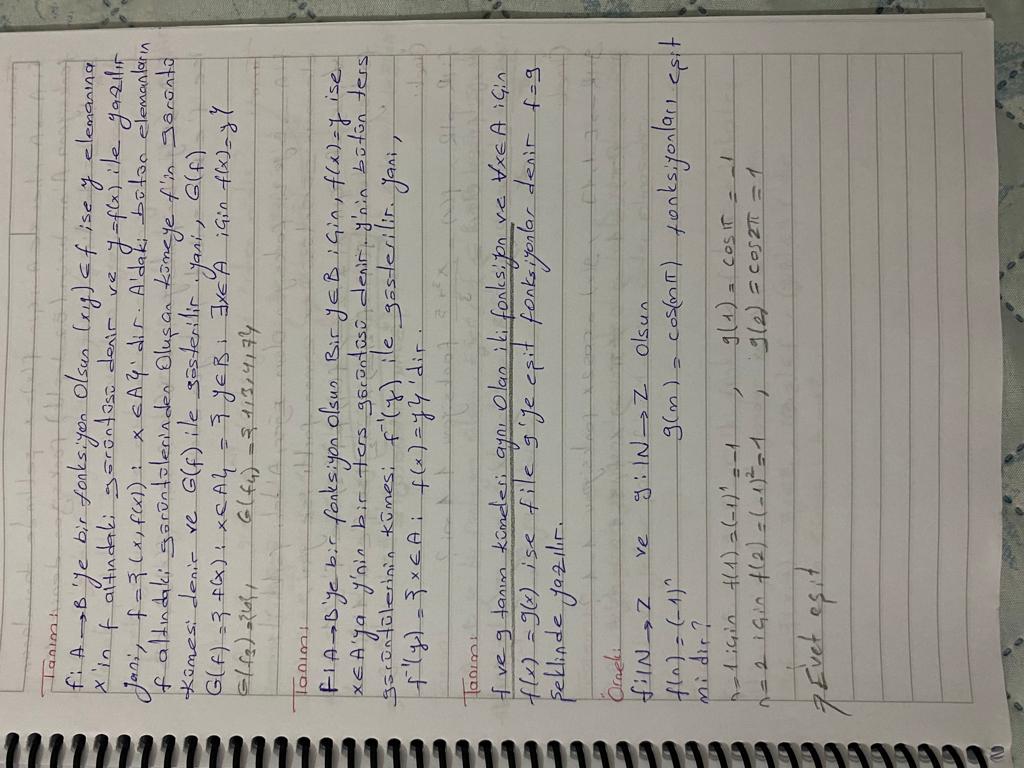 Tanım:
f: A → B'ye bir fonksiyon olsun (x,y) ∈ f ise y elemanına
x'in f altındaki görüntüsü denir ve y=f(x) ile yazılır
yani, f = { (x, f(x)) : x ∈ A }'dir. A'daki bütün elemanların
f altındaki görüntülerinden oluşan kümeye f'in görüntü
kümesi denir ve G(f) ile gösterilir. yani, G(f)
G(f) = { f(x) : x ∈ A } = { y ∈ B : ∃x ∈ A için f(x)=y }
G(f₄) = { 1,3,4,7 }
Tanım:
f: A → B'ye bir fonksiyon olsun. Bir y ∈ B için, f(x)=y ise
x ∈ A'ya y'nin bir ters görüntüsü denir. y'nin bütün ters
görüntülerinin kümesi f⁻¹(y) ile gösterilir. Yani,
f⁻¹(y) = { x ∈ A : f(x) = y }'dir.
Tanım:
f ve g tanım kümeleri aynı olan iki fonksiyon ve ∀x ∈ A için
f(x) = g(x) ise f ile g'ye eşit fonksiyonlar denir f=g
şeklinde yazılır.
Örnek:
f: IN → Z ve g: IN → Z olsun
f(n) = (-1)ⁿ g(n) = cos(nπ) fonksiyonları eşit
mi dir?
n=1 için f(1) = (-1)¹ = -1 , g(1) = cosπ = -1
n=2 için f(2) = (-1)² = 1 , g(2) = cos2π = 1
Evet eşit